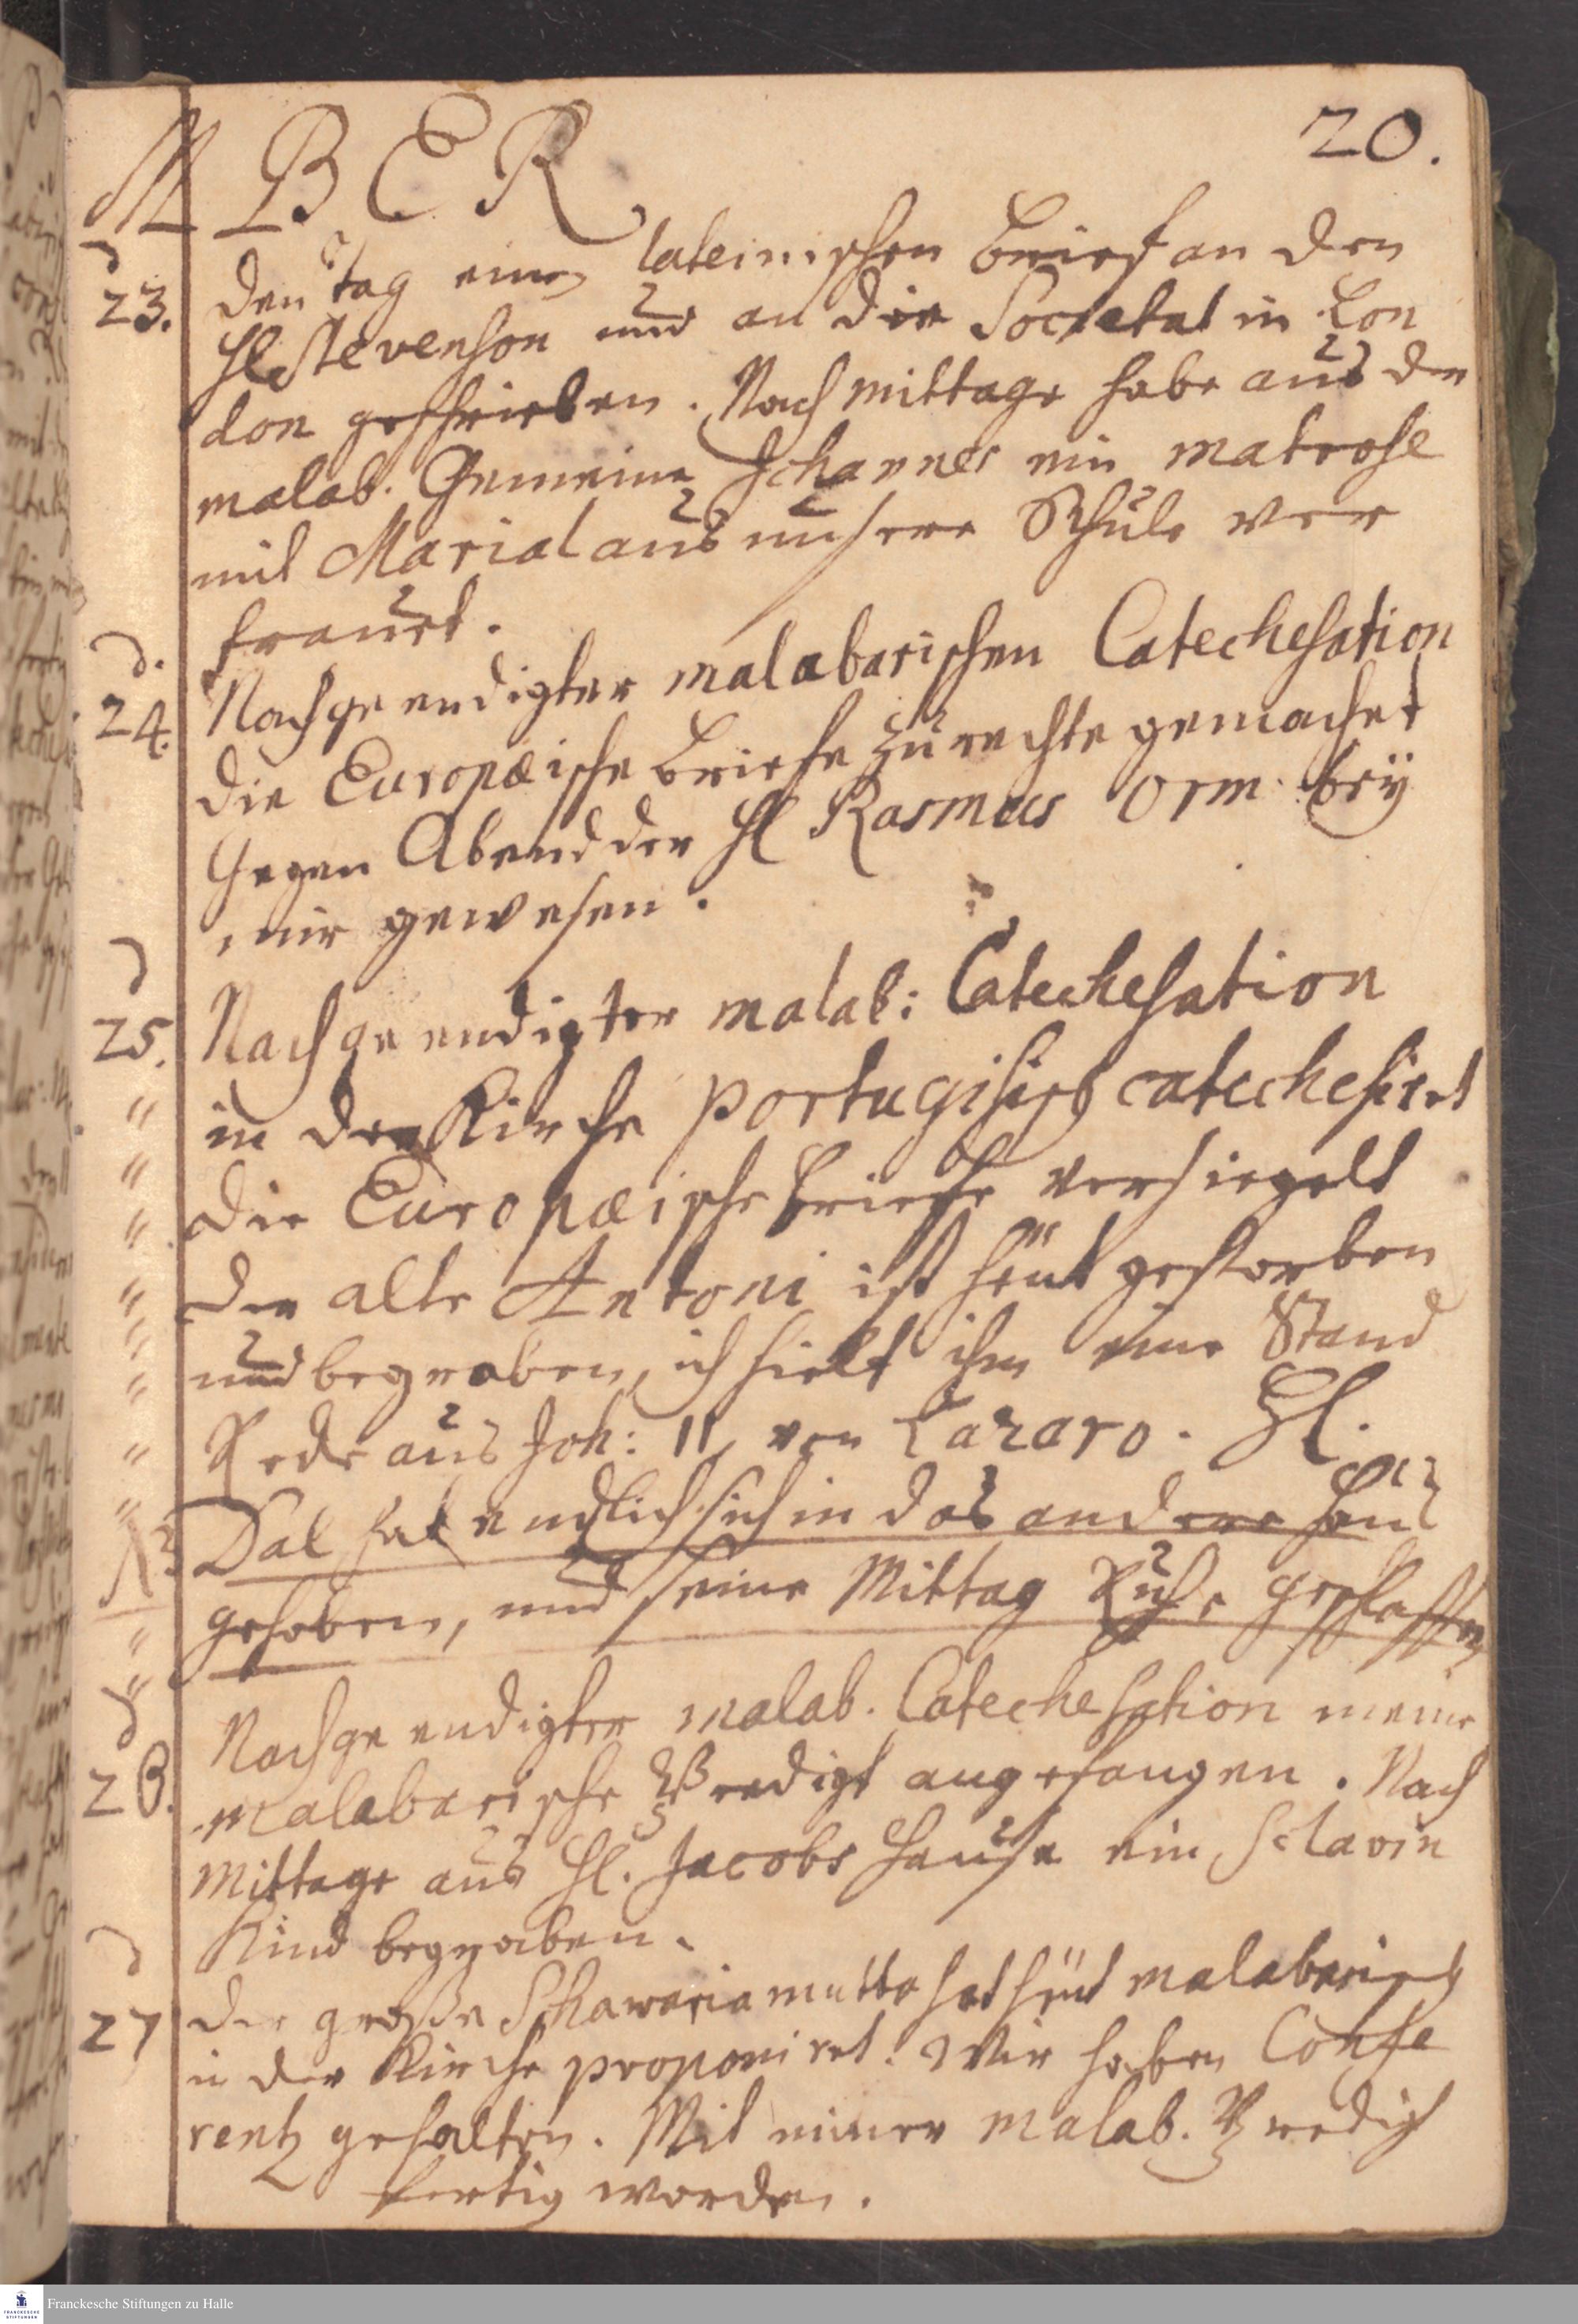 M B E R
20.
d 23. den tag einen lateinischen Brief an den
H Stevenson und an die Societat in Lon
don geschrieben. Nach mittage habe aus der
malab. Gemeine Johannes ein matrose
mit Maria aus unserer Schule ver
trauet.
d. 24. Nach geendigter malabarischen Catechesation
die Europæische Briefe zu rechte gemachet
Gegen Abend der H Rasmus Orm. bey
mir gewesen.
d 25. Nach geendigter malab: Catechesation
in der Kirche portugisisch catechesiret
Die Europæische briefe versiegelt
Der alte Antoni ist heut gestorben
und begraben, ich hielt ihm eine Stand
Rede aus Joh: 11, von Lazaro. H.
Dal hat endlich sich in das andere Haus
gehoben, und seine Mittag Ruhe geschlaffen
d 26. Nach geendigter malab. Catechesation meine
malabarische Predigt angefangen. Nach
Mittage aus H. Jacobs Hause ein Sclavin
Kind begraben.
d 27 der große Schawariamuttu hat heut malabarisch
in der Kirche proponiret. Wir haben Confe
rentz gehalten. Mit meiner malab. Predigt
fertig worden.
Franckesche Stiftungen zu Halle